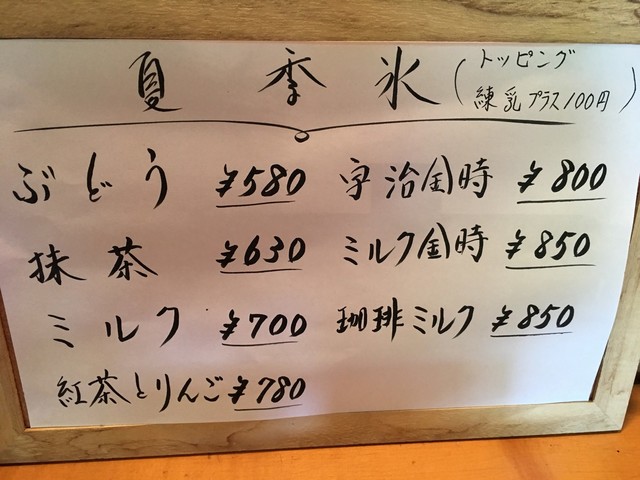 夏季氷
(トッピング
練乳プラス100円)
ぶどう ¥580
抹茶 ¥630
ミルク ¥700
紅茶とりんご ¥780
宇治金時 ¥800
ミルク金時 ¥850
珈琲ミルク ¥850